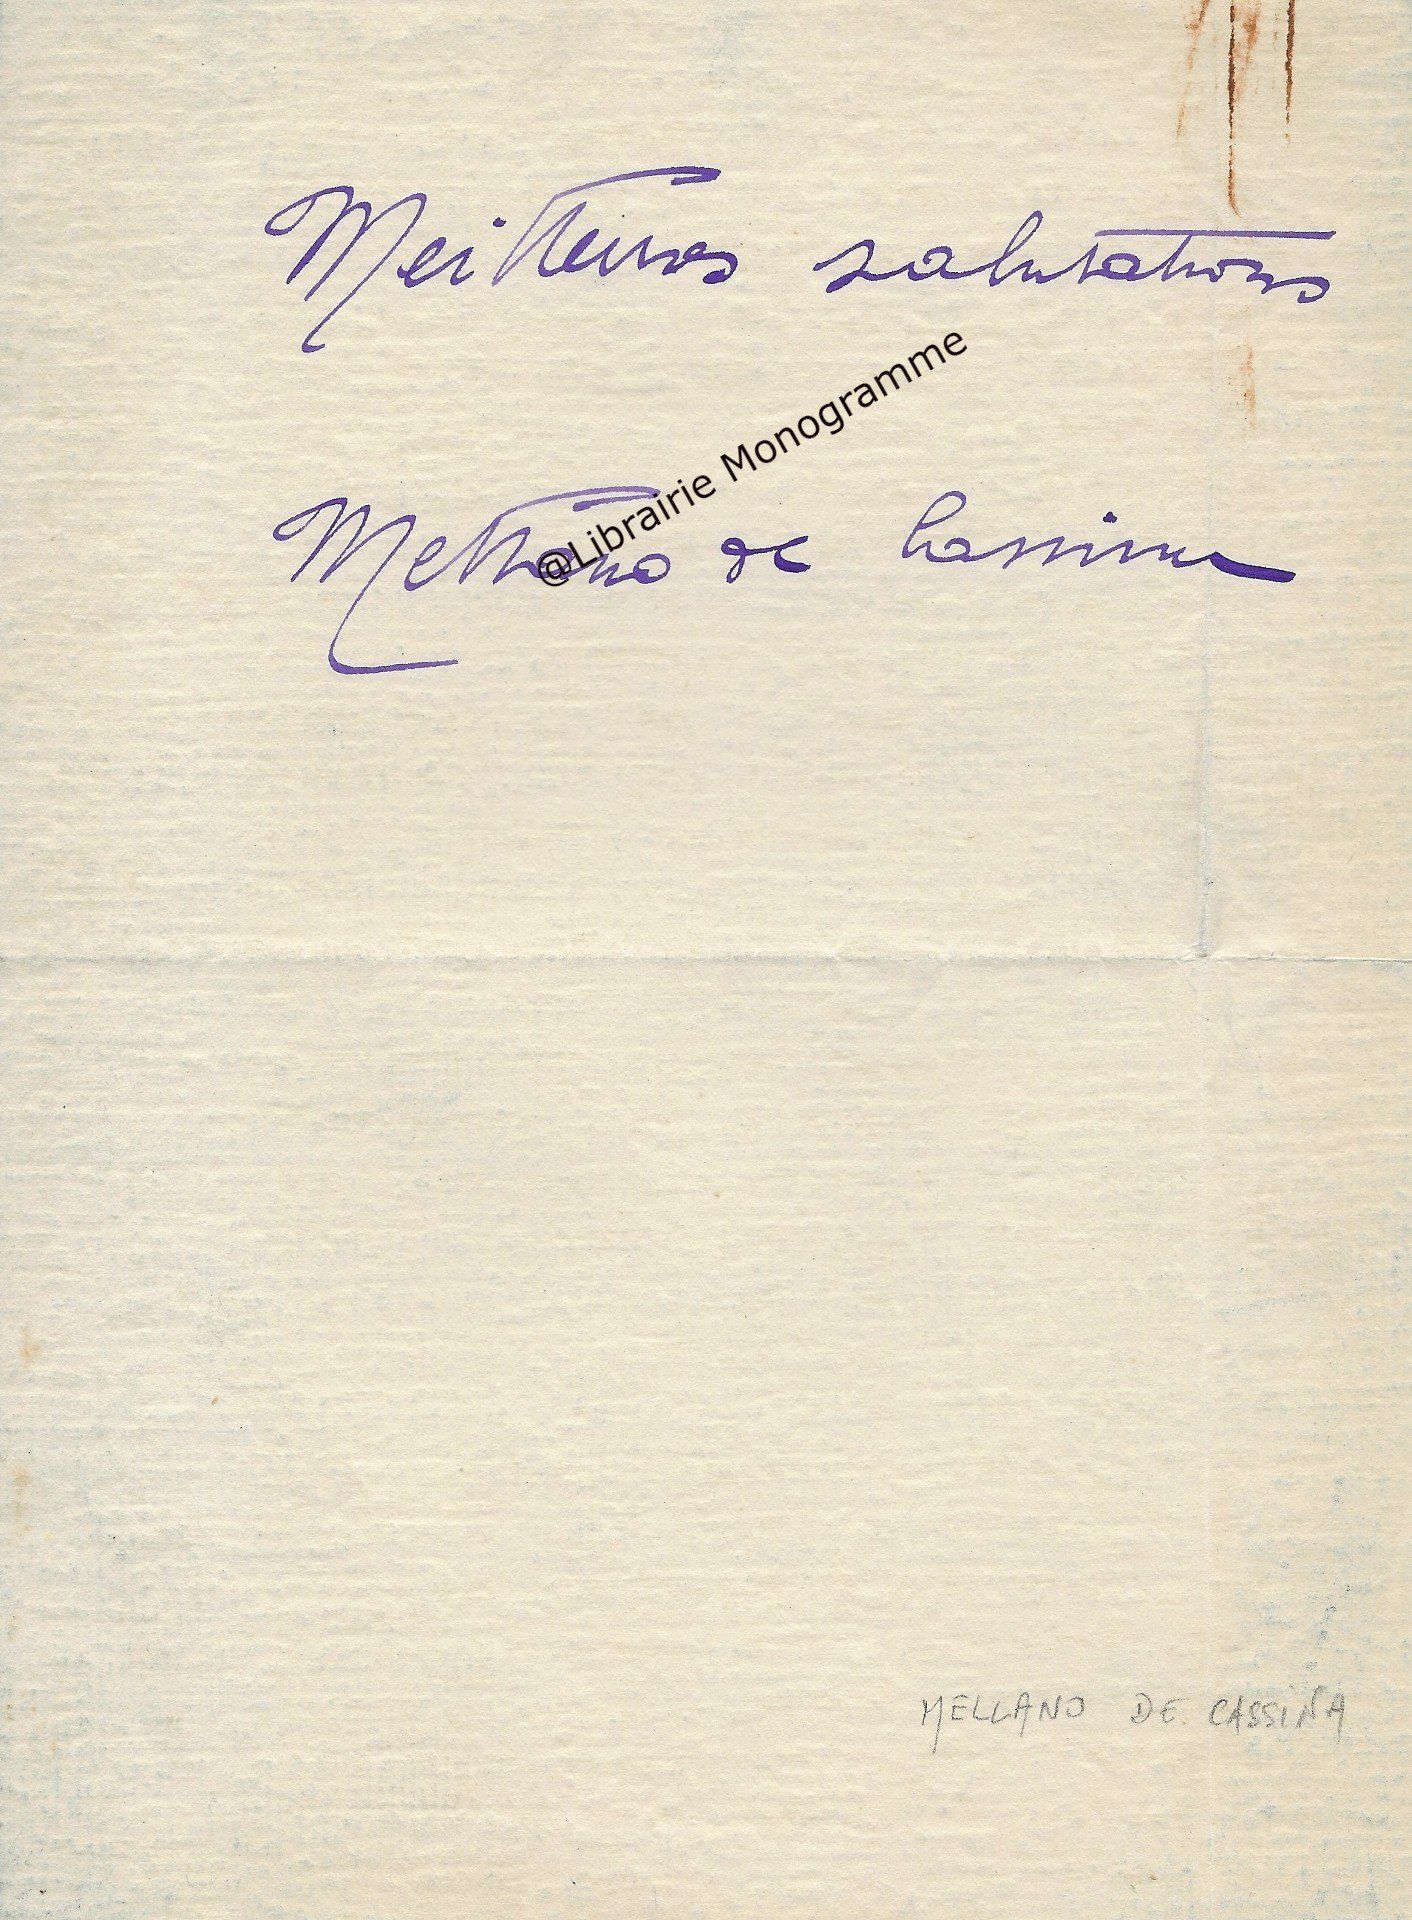 Meilleures salutations
@Librairie Monogramme
Mellano de Cassina
MELLANO DE CASSINA